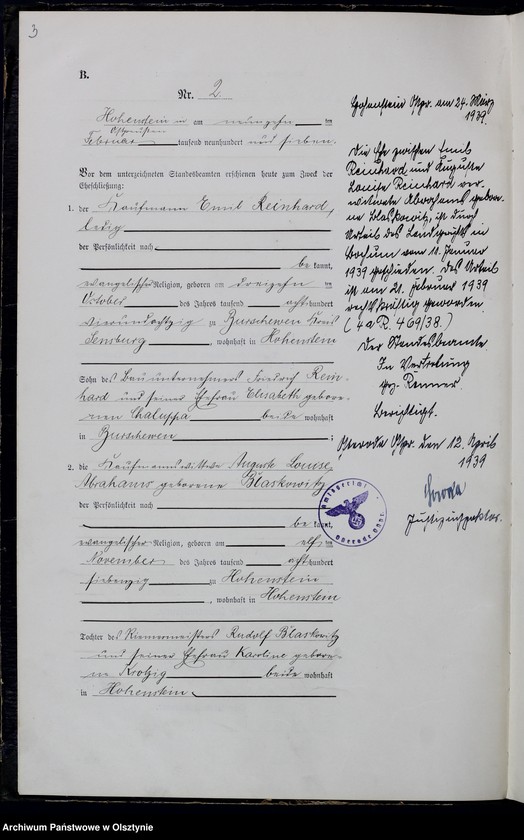 3
B.
Nr. 2
Hohenstein in am neunzehn ten
Ostpreußen
Februar tausend neunhundert und sieben.
Vor dem unterzeichneten Standesbeamten erschienen heute zum Zweck der
Eheschließung:
1. der Kaufmann Emil Reinhard,
ledig
der Persönlichkeit nach
be kannt,
evangelischer Religion, geboren am dreizehn ten
October des Jahres tausend acht hundert
vierundachtzig zu Burschewen Kreis
Sensburg, wohnhaft in Hohenstein
Sohn des Bauunternehmers Friedrich Rein-
hard und seiner Ehefrau Elisabeth gebore-
nen Chaluppa beide wohnhaft
in Burschewen;
2. die Kaufmannswittwe Auguste Louise
Abrahams geborene Blaskowitz
der Persönlichkeit nach
be kannt,
evangelischer Religion, geboren am elf ten
November des Jahres tausend acht hundert
siebenzig zu Hohenstein
, wohnhaft in Hohenstein
Tochter des Riemermeisters Rudolf Blaskowitz
und seiner Ehefrau Karoline gebore-
ne beide wohnhaft
in Hohenstein
Hohenstein Ostpr. am 24. März
1939.
Die Ehe zwischen Emil
Reinhard und Auguste
Louise Reinhard ver-
witwete Abrahams gebore-
ne Blaskowitz, ist durch
Urteil des Landgerichts in
Bochum vom 11. Januar
1939 geschieden. Das Urteil
ist am 21. Februar 1939
rechtskräftig geworden.
(4 a R. 469/38.)
Der Standesbeamte
In Vertretung
gez. Renner
Berichtigt.
Osterode Ostpr. den 12. April
1939
Justizinspektor.
Amtsgericht
Osterode Ostpr.
Archiwum Państwowe w Olsztynie